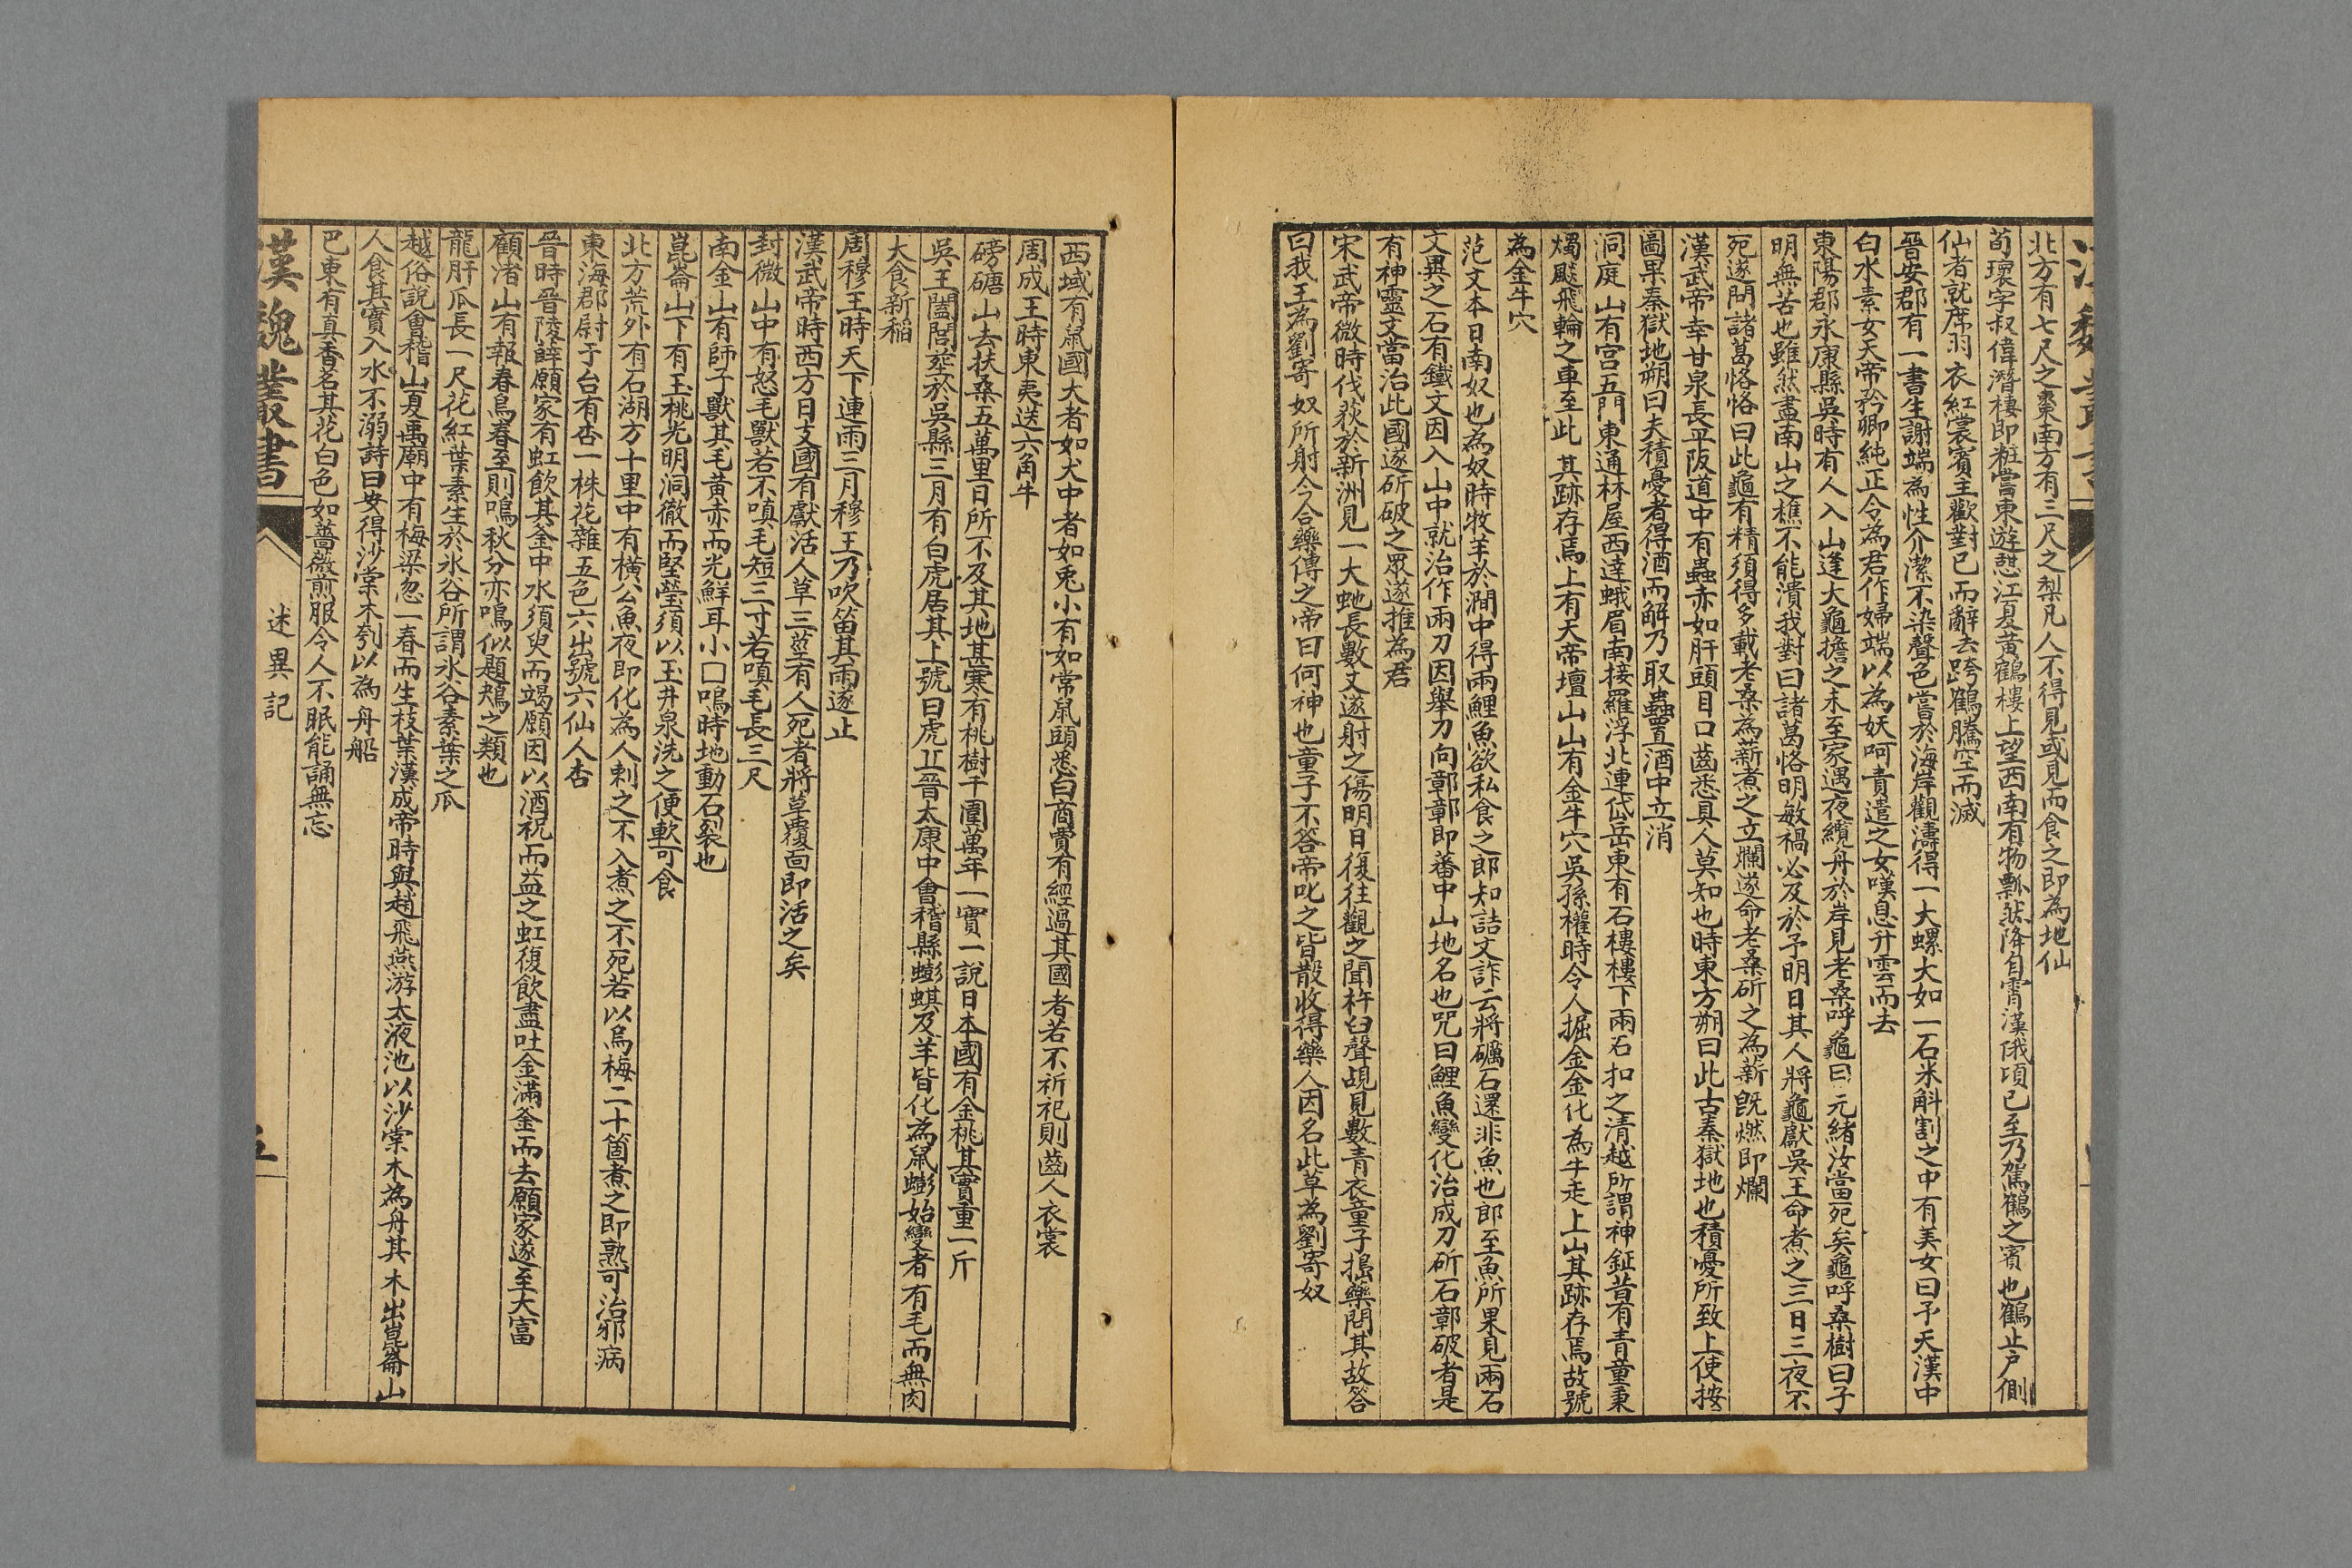 北方有七尺之棗南方有三尺之梨凡人不得見或見而食之即為地仙
荀瓌字叔偉潛棲即粧嘗東遊憩江夏黃鶴樓上望西南有物飄然降自霄漢俄頃已至乃駕鶴之賓也鶴止戶側
仙者就席羽衣紅裳賓主歡對已而辭去跨鶴騰空而滅
晉安郡有一書生謝端為性介潔不染聲色嘗於海岸觀濤得一大螺大如一石米斛割之中有美女曰予天漢中
白水素女天帝矜卿純正令為君作婦端以為妖呵責遣之女嘆息升雲而去
東陽郡永康縣吳時有人入山逢大龜擔之未至家遇夜纜舟於岸見老桑呼龜曰元緒汝當死矣龜呼桑樹曰子
明無苦也雖然盡南山之樵不能潰我對曰諸葛恪明敏禍必及於予明日其人將龜獻吳王命煮之三日三夜不
死遂問諸葛恪恪曰此龜有精須得多載老桑為薪煮之立爛遂命老桑斫之為薪旣燃即爛
漢武帝幸甘泉長平阪道中有蟲赤如肝頭目口齒悉具人莫知也時東方朔曰此古秦獄地也積憂所致上使按
圖果秦獄地朔曰夫積憂者得酒而解乃取蟲置酒中立消
洞庭山有宮五門東通林屋西達蛾眉南接羅浮北連岱岳東有石樓樓下兩石扣之清越所謂神鉦昔有青童秉
燭颷飛輪之車至此其跡存焉上有天帝壇山山有金牛穴吳孫權時令人掘金金化為牛走上山其跡存焉故號
為金牛穴
范文本日南奴也為奴時牧羊於澗中得兩鯉魚欲私食之郎知詰文詐云將礪石還非魚也郎至魚所果見兩石
文異之石有鐵文因入山中就治作兩刀因舉刀向鄣鄣即蕃中山地名也咒曰鯉魚變化治成刀斫石鄣破者是
有神靈文當治此國遂斫破之眾遂推為君
宋武帝微時伐荻於新洲見一大虵長數丈遂射之傷明日復往觀之聞杵臼聲覘見數青衣童子搗藥問其故答
曰我王為劉寄奴所射今合藥傅之帝曰何神也童子不答帝叱之皆散收得藥人因名此草為劉寄奴
西域有鼠國大者如犬中者如兎小有如常鼠頭悉白商賈有經過其國者若不祈祀則齒人衣裳
周成王時東夷送六角牛
磅磄山去扶桑五萬里日所不及其地甚寒有桃樹千圍萬年一實一說日本國有金桃其實重一斤
吳王闔閭塟於吳縣三月有白虎居其上號曰虎丘晉太康中會稽縣蟛蜞及羊皆化為鼠蟛始變者有毛而無肉
大食新稻
周穆王時天下連雨三月穆王乃吹笛其雨遂止
漢武帝時西方日支國有獻活人草三莖有人死者將草覆面即活之矣
封微山中有怒毛獸若不嗔毛短三寸若嗔毛長三尺
南金山有師子獸其毛黃赤而光鮮耳小□鳴時地動石裂也
崑崙山下有玉桃光明洞徹而堅瑩須以玉井泉洗之便軟可食
北方荒外有石湖方十里中有橫公魚夜即化為人刺之不入煮之不死若以烏梅二十箇煮之即熟可治邪病
東海郡尉于台有杏一株花雜五色六出號六仙人杏
晉時晉陵薛願家有虹飲其金中水須臾而竭願因以酒祝而益之虹復飲盡吐金滿釜而去願家遂至大富
顧渚山有報春鳥春至則鳴秋分亦鳴似題鴂之類也
龍肝瓜長一尺花紅葉素生於氷谷所謂氷谷素葉之瓜
越俗說會稽山夏禹廟中有梅梁忽一春而生枝葉漢成帝時與趙飛燕游太液池以沙棠木為舟其木出崑崙山
人食其實入水不溺詩曰安得沙棠木刳以為舟船
巴東有真香茗其花白色如薔薇煎服令人不眠能誦無忘
漢魏叢書
述異記
五